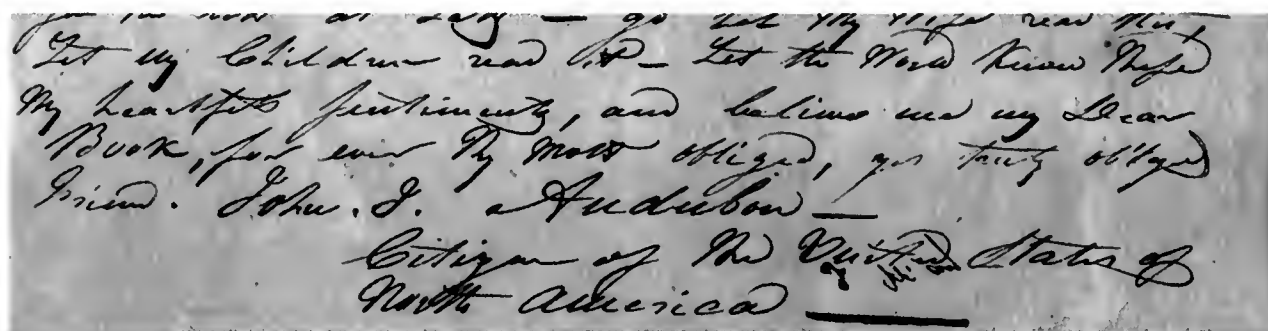 you the now at Last — go let My Wife read this,
Let my Children read it — Let the World know these
My heartfelt sentiments, and believe me my Dear
Book, for ever Thy most obliged, yes truly obliged
friend. John. J. Audubon —
Citizen of the United States of
North America